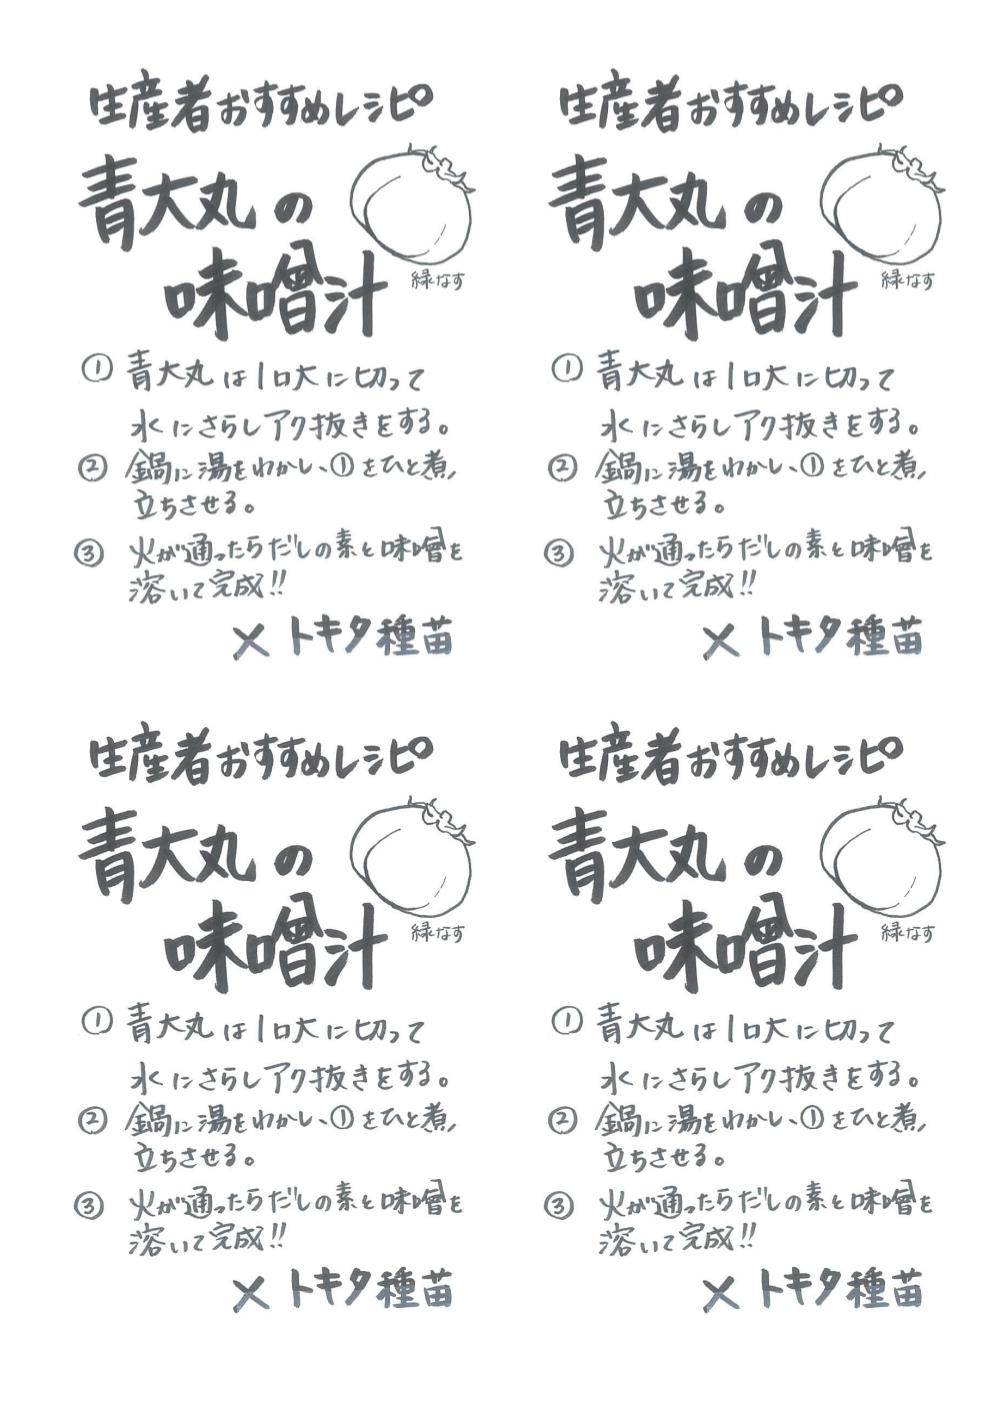 生産者おすすめレシピ
青大丸の
味噌汁
緑なす
① 青大丸は1口大に切って
水にさらしアク抜きをする。
② 鍋に湯をわかし、①をひと煮
立ちさせる。
③ 火が通ったらだしの素と味噌を
溶いて完成!!
× トキタ種苗
生産者おすすめレシピ
青大丸の
味噌汁
緑なす
① 青大丸は1口大に切って
水にさらしアク抜きをする。
② 鍋に湯をわかし、①をひと煮
立ちさせる。
③ 火が通ったらだしの素と味噌を
溶いて完成!!
× トキタ種苗
生産者おすすめレシピ
青大丸の
味噌汁
緑なす
① 青大丸は1口大に切って
水にさらしアク抜きをする。
② 鍋に湯をわかし、①をひと煮
立ちさせる。
③ 火が通ったらだしの素と味噌を
溶いて完成!!
× トキタ種苗
生産者おすすめレシピ
青大丸の
味噌汁
緑なす
① 青大丸は1口大に切って
水にさらしアク抜きをする。
② 鍋に湯をわかし、①をひと煮
立ちさせる。
③ 火が通ったらだしの素と味噌を
溶いて完成!!
× トキタ種苗